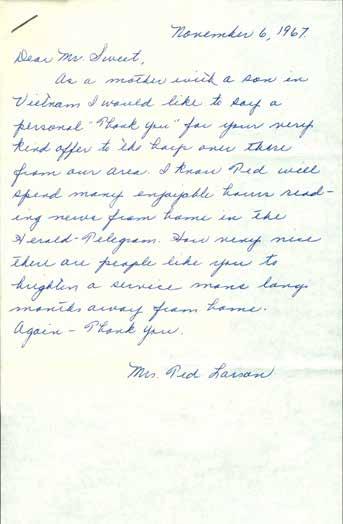 November 6, 1967
Dear Mr. Sweet,
As a mother with a son in
Vietnam I would like to say a
personal "Thank you" for your very
kind offer to the boys over there
from our area. I know Ted will
spend many enjoyable hours read-
ing news from home in the
Herald-Telegram. How very nice
there are people like you to
brighten a service mans long
months away from home.
Again - Thank you.
Mrs. Ted Larson